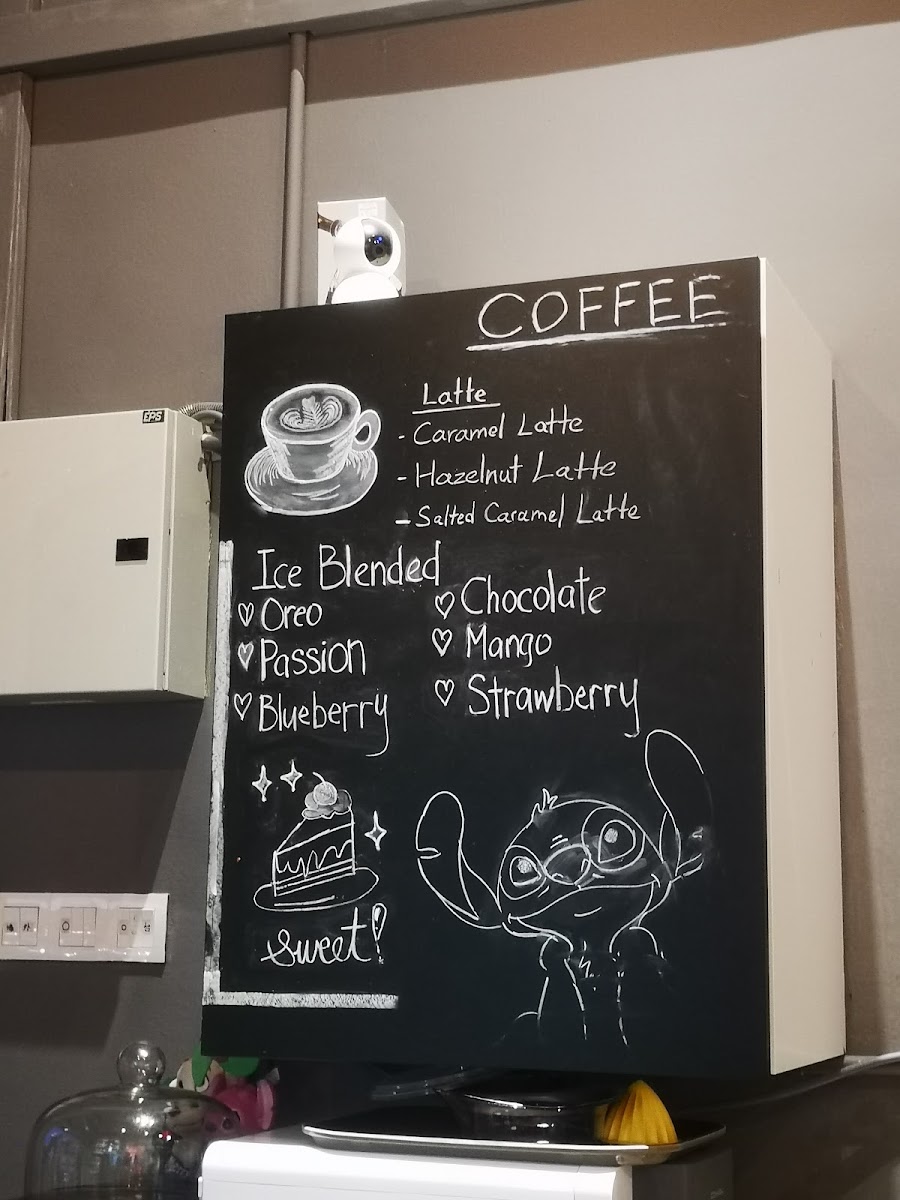 COFFEE
Latte
- Caramel Latte
- Hazelnut Latte
- Salted Caramel Latte
Ice Blended
♡ Oreo
♡ Passion
♡ Blueberry
♡ Chocolate
♡ Mango
♡ Strawberry
sweet!
EPS